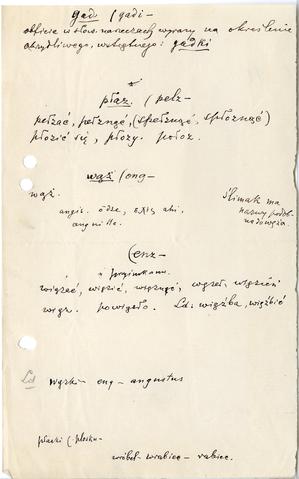 gad. / gadi-
obficie w słow. narzeczach wyrazy na określenie
obrzydliwego, wstrętnego i gadki
płaz. / pelz-
pełzać, pełznąć, (spełznąć, spłoznąć)
płozić się, płozy. połoz.
wąż / ong-
wąż.
angis.
anguilla.
Ślimak ma
nazwy podob-
(enz-
z przyimkami.
więzieć, więzić, więznąć, węzeł, więzień
więzy. powięzło. Ld: więźba, więźbić
Ld wązki- eng- angustus
płaski (-plosku-
wróbel- wrabiec- rabiec.